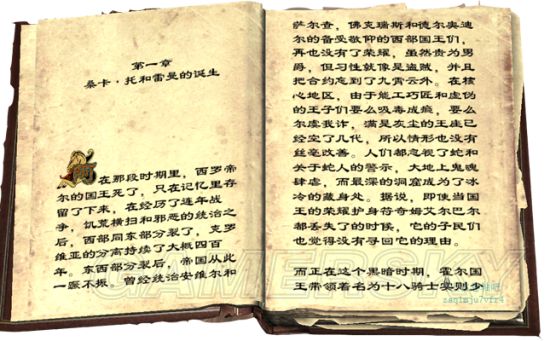 第一章
桑卡·托和雷曼的诞生
在那段时期里，西罗帝
尔的国王死了，只在记忆里存
留了下来，在经历了连年战
争，饥荒横扫和邪恶的统治之
后，西部同东部分裂了，克罗
维亚的分离持续了大概四百
年。东西部分裂后，帝国从此
一蹶不振。曾经统治安维尔和
萨尔查，佛克瑞斯和德尔奥迪
尔的备受敬仰的西部国王们，
再也没有了荣耀，虽然贵为男
爵，但习性就像是盗贼，并且
把合约忘到了九霄云外。在核
心地区，由于能工巧匠和虚伪
的王子们要么吸毒成瘾，要么
尔虞我诈，满是灰尘的王座已
经空了几代，所以情形也没有
丝毫改善。人们都忽视了蛇和
关于蛇人的警示，大地上鬼魂
肆虐，而最深的洞窟成为了冰
冷的藏身处。据说，即使当国
王的荣耀护身符奇姆艾尔巴尔
都丢失了的时候，它的子民们
也觉得没有寻回它的理由。
而正在这个黑暗时期，霍尔国
王带领着名为十八骑士实则少
GAMERSKY
zaq1mju7vfr4